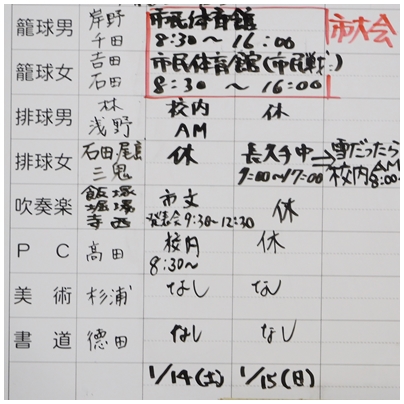 籠球男 岸野 千田 市民体育館 8:30〜16:00 市大会
籠球女 吉田 石田 市民体育館(市民戦) 8:30 〜 16:00
排球男 林 浅野 校内 AM 休
排球女 石田 尾 三鬼 休 長久手中 9:00〜17:00 ⇒雪だったら 校内AM 8:00〜
吹奏楽 飯塚 堀場 寺西 市文 発表会9:30〜12:30 休
PC 高田 校内 8:30〜 休
美術 杉浦 なし なし
書道 徳田 なし なし
1/14(土) 1/15(日)